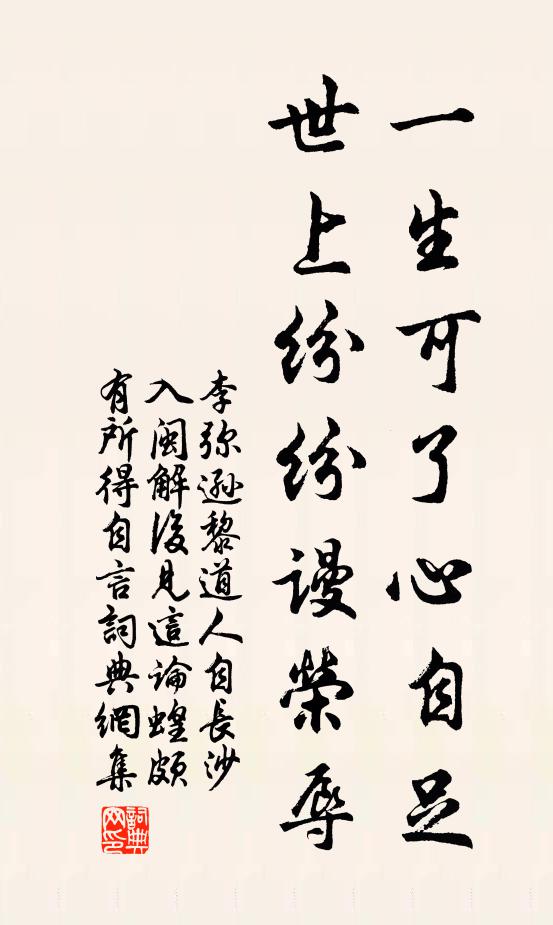 一生可了心自足
世上紛紛謾榮辱
李弥遜黎道人自長沙
入閩解後見這論蝗頗
有所得自言詞典網集
詞典
网印